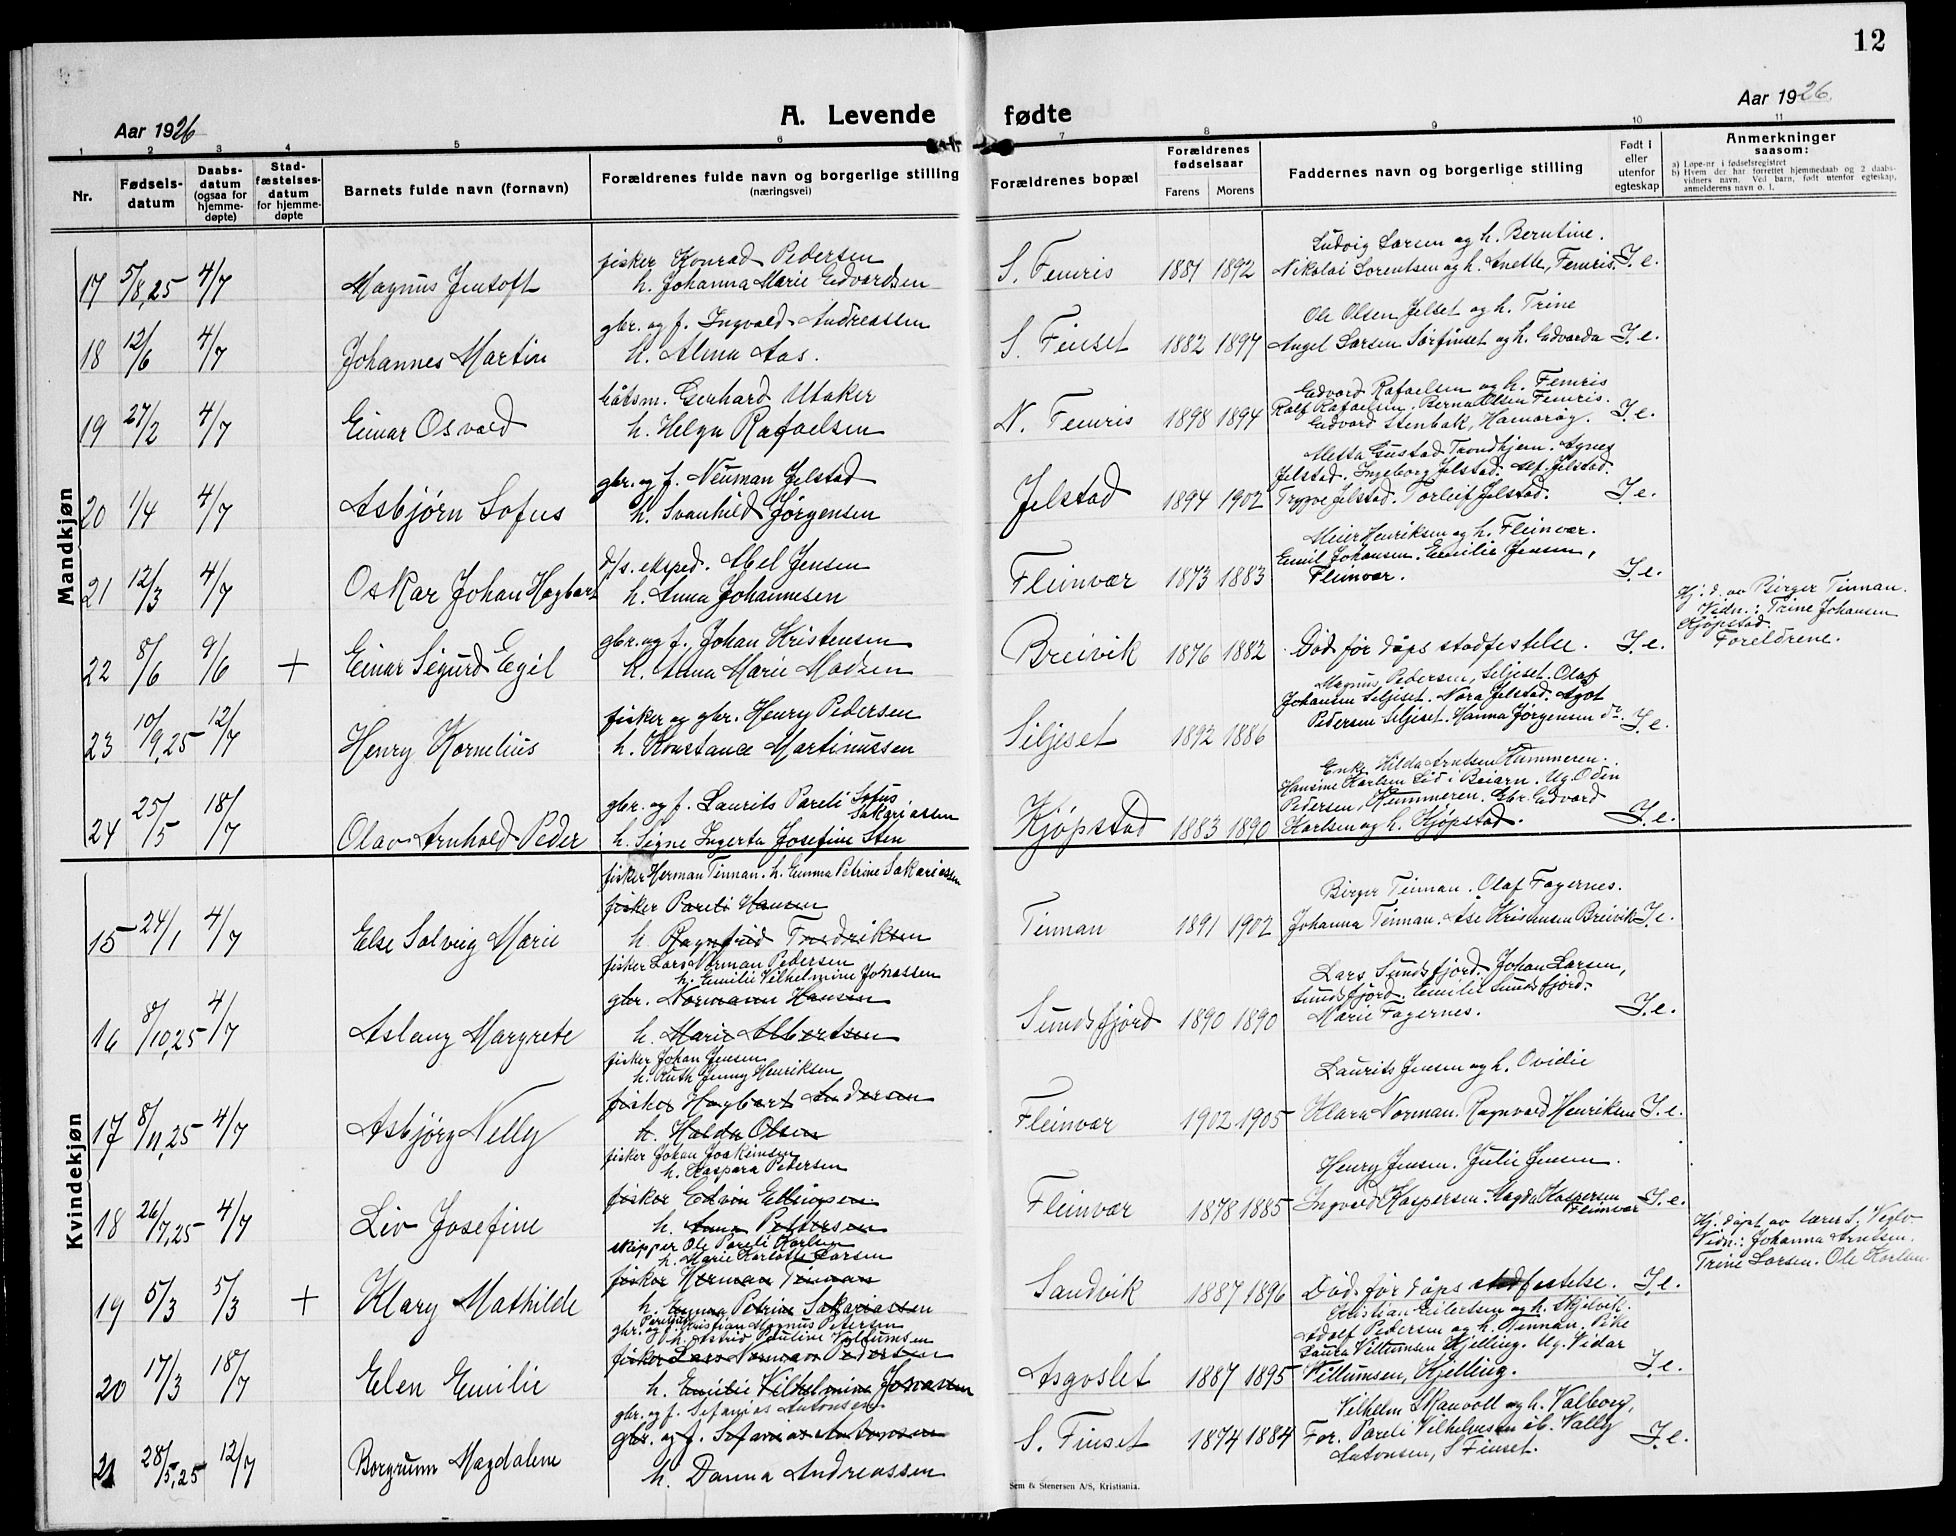 12
Aar 1926
A. Levende fødte
Aar 1926.
1 2 3 4 5 6 7 8 9 10 11
Nr.
Fødsels-
datum
Daabs-
datum
(ogsaa for
hjemme-
døpte)
Stad-
fæstelses-
datum
for hjemme-
døpte
Barnets fulde navn (fornavn)
Forældrenes fulde navn og borgerlige stilling
(næringsvei)
Forældrenes bopæl
Forældrenes
fødselsaar
Farens Morens
Faddernes navn og borgerlige stilling
Født i
eller
utenfor
egteskap
Anmerkninger
saasom:
a) Løpe-nr i fødselsregistret
b) Hvem der har forrettet hjemmedaab og 2 daabs-
vidners navn. Ved barn, født utenfor egteskap,
anmelderens navn o. l.
Mandkjøn
fisker Konrad Pedersen
Ludvig Larsen og h. Berntine.
17 5/8,25 4/7 Magnus Jentoft h. Johanna Marie Edvardsen S. Femris 1881 1892 Nikolai Lorentsen og h. Anette, Femris. I.e.
gbr. og f. Ingvald Andreassen
Ole Olsen Jelset og h. Trine
18 12/6 4/7 Johannes Martin h. Alma Aas. S. Finset 1882 1897 Angel Larsen Sørfinset og h. Edvarda I.e.
båtsm. Gerhard Utaker
Edvard Rafaelsen og h. Femris
Rolf Rafaelsen. Berna Olsen Femris.
19 27/2 4/7 Einar Osvald h. Helga Rafaelsen N. Femris 1898 1894 Edvard Stenbak, Hamarøy. I.e.
gbr. og f. Neuman Jelstad
Metta Gustad Trondhjem. Agnes
Jelstad. Ingeborg Jelstad. Alf. Jelstad.
20 1/4 4/7 Asbjørn Sofus h. Svanhild Jørgensen Jelstad 1894 1902 Trygve Jelstad. Torleif Jelstad. I.e.
d/s. eksped. Abel Jensen
Meier Henriksen og h. Fleinvær.
Emil Johansen. Emilie Jensen,
21 12/3 4/7 Oskar Johan Hagbart h. Anna Johannesen Fleinvær 1873 1883 Fleinvær. I.e.
gbr. og f. Johan Kristensen
22 8/6 9/6 + Einar Sigurd Egil h. Anna Marie Madsen Breivik 1876 1882 Død før dåps stadfestelse. I.e.
Hj. d. av Birger Tinnan.
Vidn.: Trine Johansen
Kjøpstad.
Foreldrene.
fisker og gbr. Henry Pedersen
Magnus Pedersen, Seljeset. Olaf
Johansen Seljeset. Nora Jelstad. Agot
23 10/9,25 12/7 Henry Kornelius h. Konstance Martinussen Siljeset 1892 1886 Pedersen Seljeset. Hanna Jørgensen do. I.e.
gbr. og f. Laurits Pareli Sofus
Sakariassen
Enke Hilda Arntsen Kummeren.
Hansine Karlsen Lid i Beiarn. Ug. Odin
Pedersen, Kummeren. Gbr. Edvard
24 25/5 18/7 Olav Arnhold Peder h. Signe Ingerta Josefine Sten Kjøpstad 1883 1890 Karlsen og h. Kjøpstad. I.e.
Kvindekjøn
fisker Herman Tinnan. h. Emma Petrine Sakariassen
fisker Pareli Hansen
Birger Tinnan. Olaf Fagernes.
15 24/1 4/7 Else Solveig Marie h. Ragnfrid Fredriksen Tinnan 1891 1902 Johanna Tinnan. Åse Kristensen Breivik I.e.
fisker Lars Norman Pedersen
h. Emilie Vilhelmine Jonassen
gbr. Normann Hansen
Lars Sundsfjord. Johan Larsen,
Sundsfjord. Emilie Sundsfjord.
16 8/10,25 4/7 Aslaug Margrete h. Marie Albertsen Sundsfjord 1890 1890 Marie Fagernes. I.e.
fisker Johan Jensen
h. Ruth Jenny Henriksen
fisker Hagbart Andersen
Laurits Jensen og h. Ovidie
17 8/11,25 4/7 Asbjørg Nelly h. Halda Olsen Fleinvær 1902 1905 Klara Norman. Ragnvard Henriksen I.e.
fisker Johan Joakimsen
h. Kaspara Pedersen
fisker Edvin Ellingsen
Henry Jensen. Julie Jensen.
18 26/7,25 4/7 Liv Josefine h. Anna Pettersen Fleinvær 1878 1885 Ingvard Kaspersen. Magda Kaspersen
Fleinvær I.e.
skipper Ole Pareli Karlsen
h. Marie Karlotte Larsen
fisker Herman Tinnan
19 5/3 5/3 + Klary Mathilde h. Emma Petrine Sakariassen Sandvik 1887 1896 Død før dåps stadfestelse. I.e.
Hj. døpt av lærer S. Veglo
Vidn.: Johanna Arntsen.
Trine Larsen. Ole Karlsen
gbr. og f. Kristian Magnus Petersen
h. Astrid Pauline Villumsen
fisker Lars Norman Pedersen
Kristian Eilertsen og h. Skjelvik.
Adolf Pedersen og h. Tinnan. Pike
Laura Villumsen Kjelling. Ug. Vidar
20 17/3 18/7 Elen Emilie h. Emilie Vilhelmine Jonassen Asgoslet 1887 1895 Villumsen, Kjelling. I.e.
gbr. og f. Sefanias Antonsen
gbr. og f. Sefanias Antonsen
Vilhelm Skauvoll og h. Valborg,
For. Pareli Vilhelmsen ib. Vally
21 28/5,25 12/7 Borgrunn Magdalene h. Danna Andreassen S. Finset 1874 1884 Antonsen, S Finset. I.e.
Sem & Stenersen A/S, Kristiania.